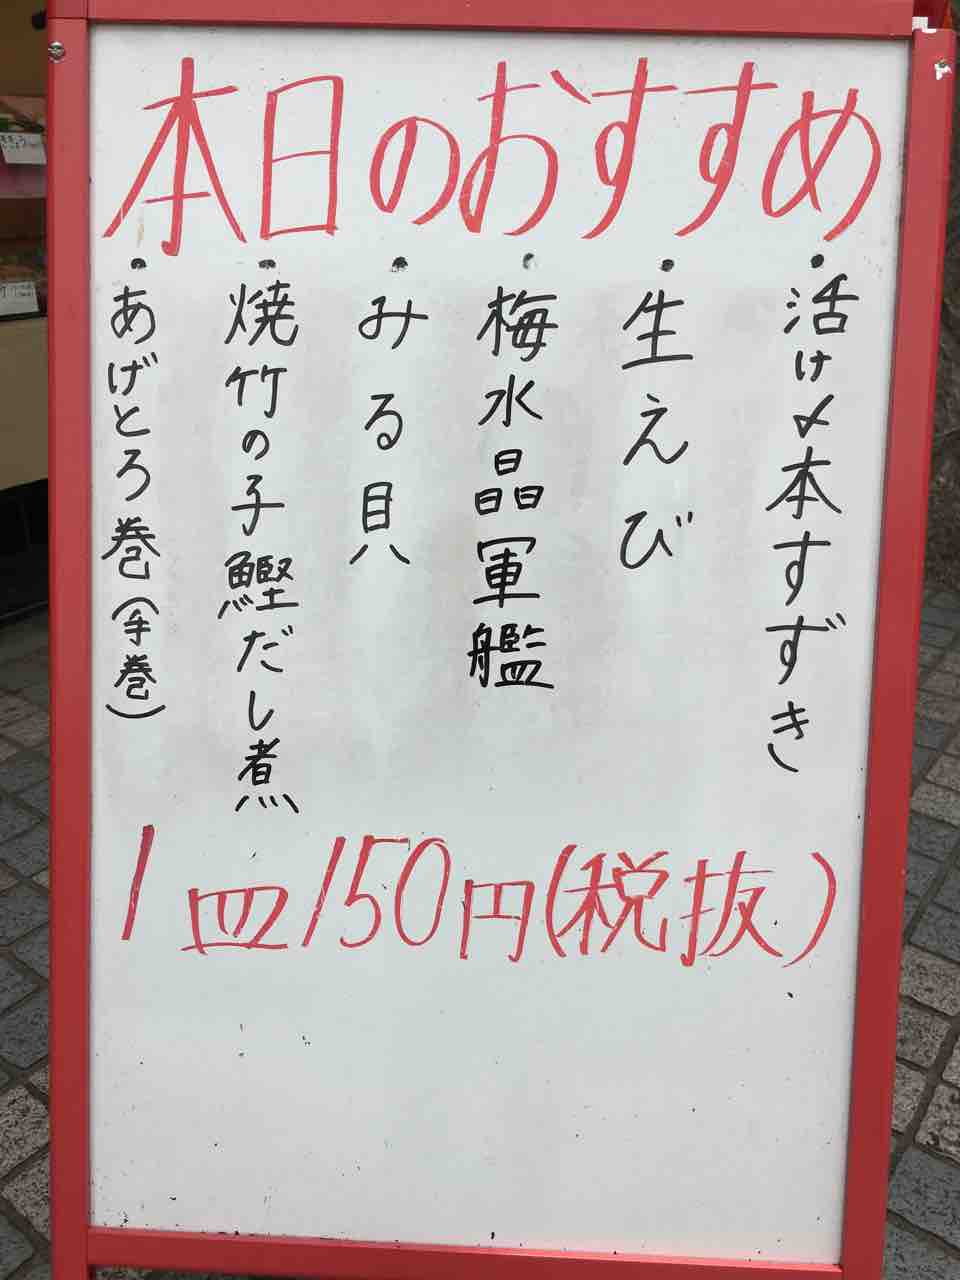 本日のおすすめ
・活け〆本すずき
・生えび
・梅水晶軍艦
・みる貝
・焼竹の子鰹だし煮
・あげとろ巻(手巻)
1皿150円(税抜)